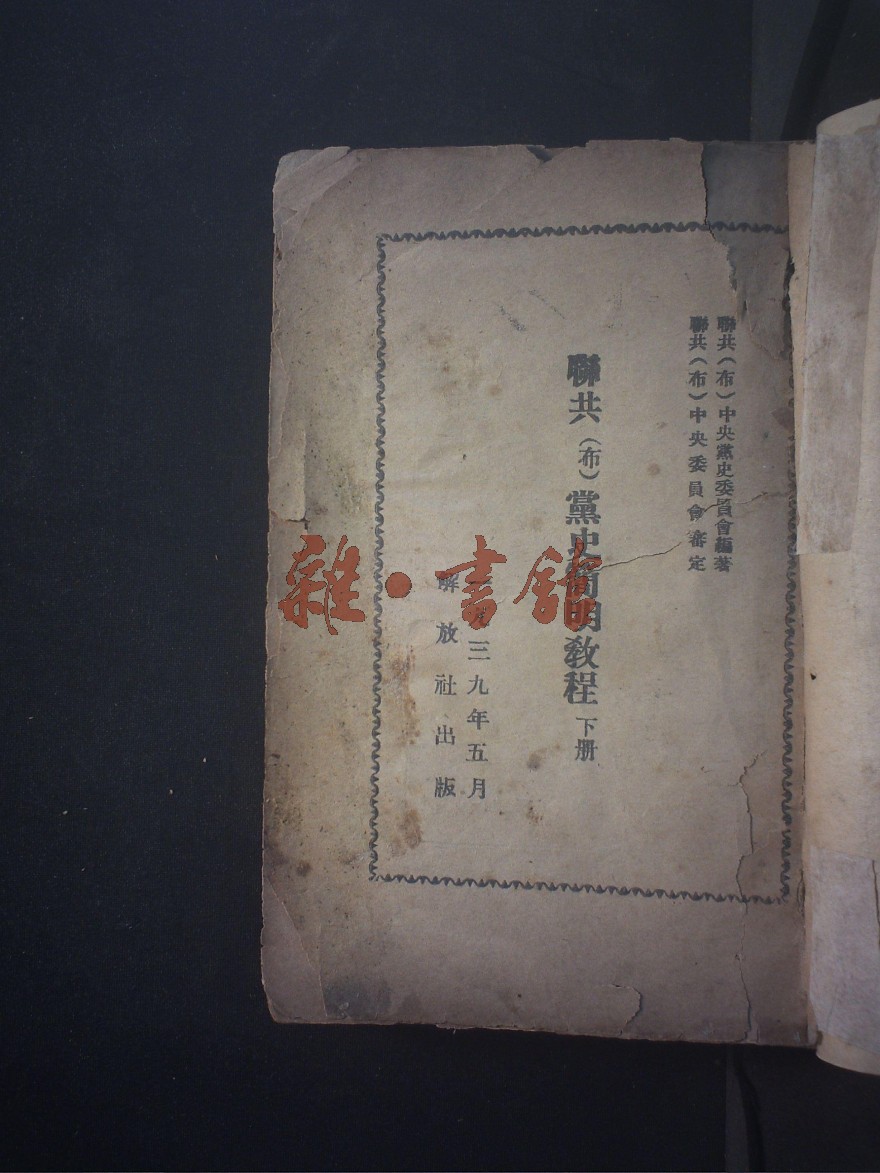 聯共（布）中央黨史委員會編著
聯共（布）中央委員會審定
聯共（布）黨史簡明教程 下册
一九三九年五月
解放社出版
雜·書館